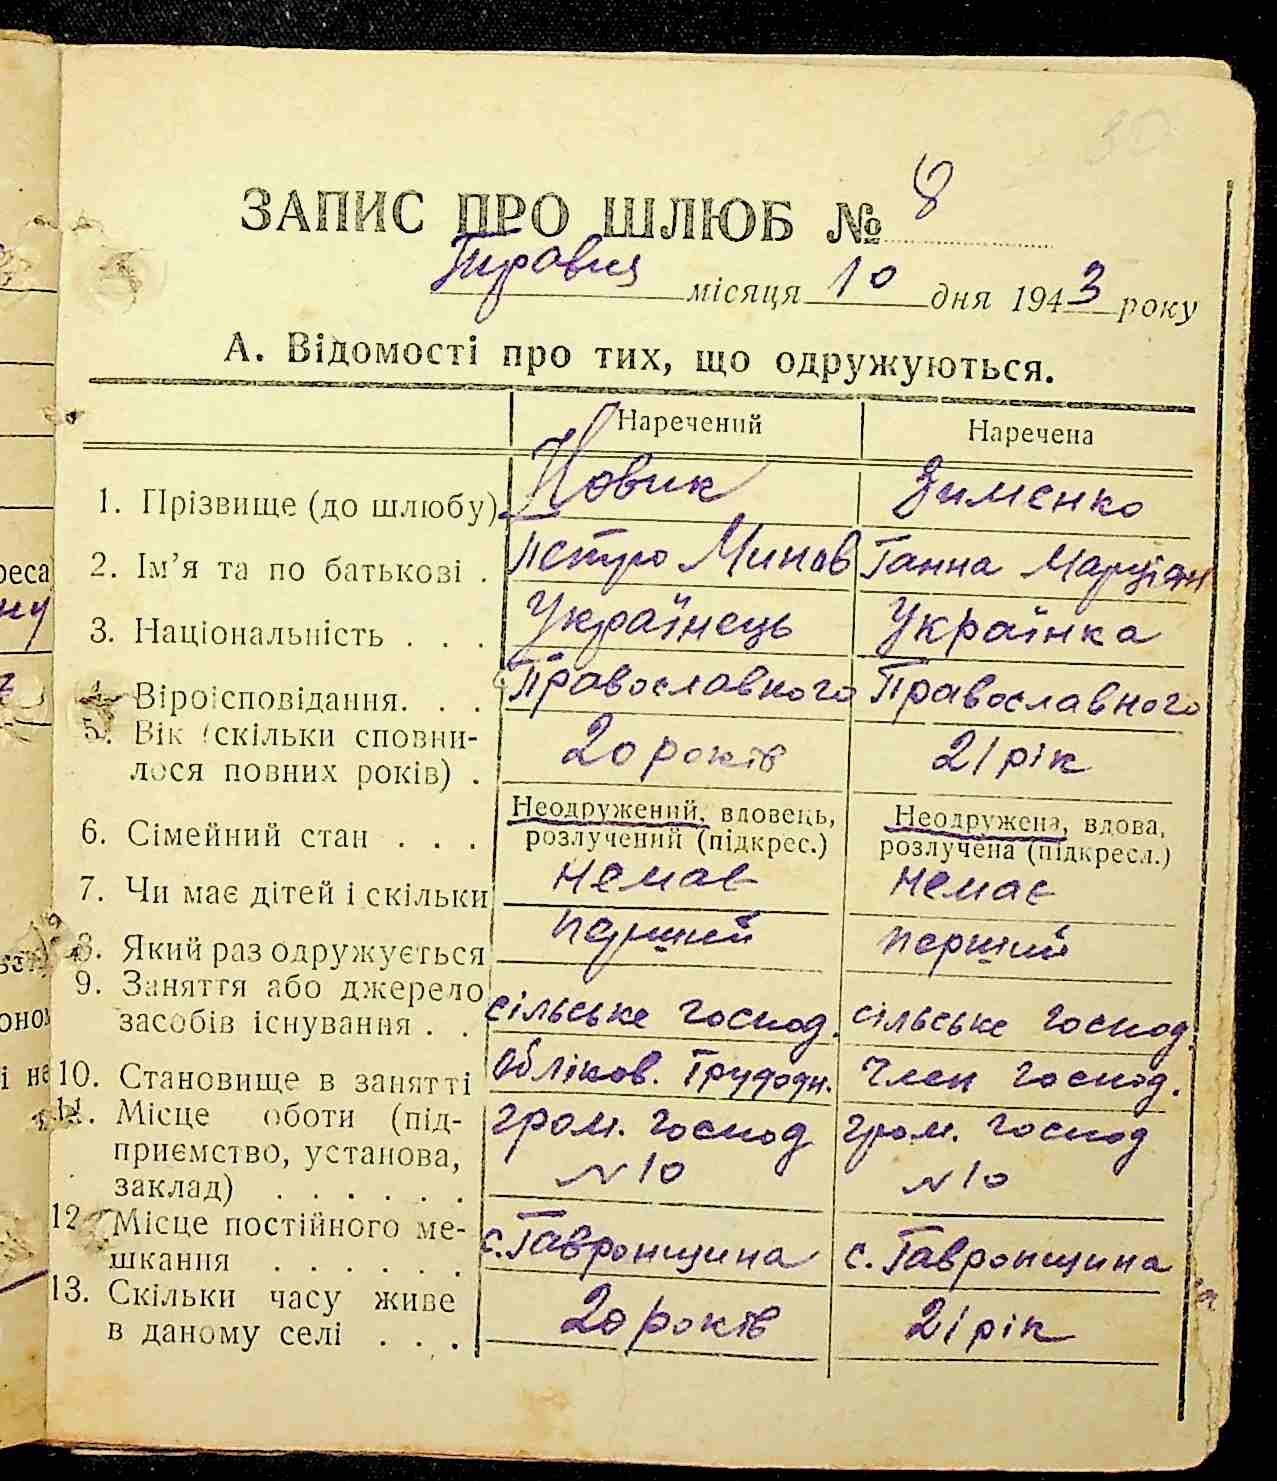 ЗАПИС ПРО ШЛЮБ № 8
Травня місяця 10 дня 1943 року
А. Відомості про тих, що одружуються.
Наречений Наречена
1. Прізвище (до шлюбу) Новик Зименко
2. Ім'я та по батькові . Петро Минов Ганна Марціян
3. Національність . . . Українець Українка
Віроісповідання. . . Православного Православного
5. Вік (скільки сповни-
лося повних років) . 20 років 21 рік
6. Сімейний стан . . . Неодружений, вдовець, Неодружена, вдова,
розлучений (підкрес.) розлучена (підкресл.)
7. Чи має дітей і скільки немає немає
8. Який раз одружується перший перший
9. Заняття або джерело
засобів існування . . сільське господ. сільське господ.
10. Становище в занятті обліков. Трудодн. Член господ.
11. Місце оботи (під- гром. господ гром. господ
приємство, установа, № 10 № 10
заклад) . . . . . .
12 Місце постійного ме-
шкання . . . . . . с. Гавронщина с. Гавронщина
13. Скільки часу живе
в даному селі . . . 20 років 21 рік